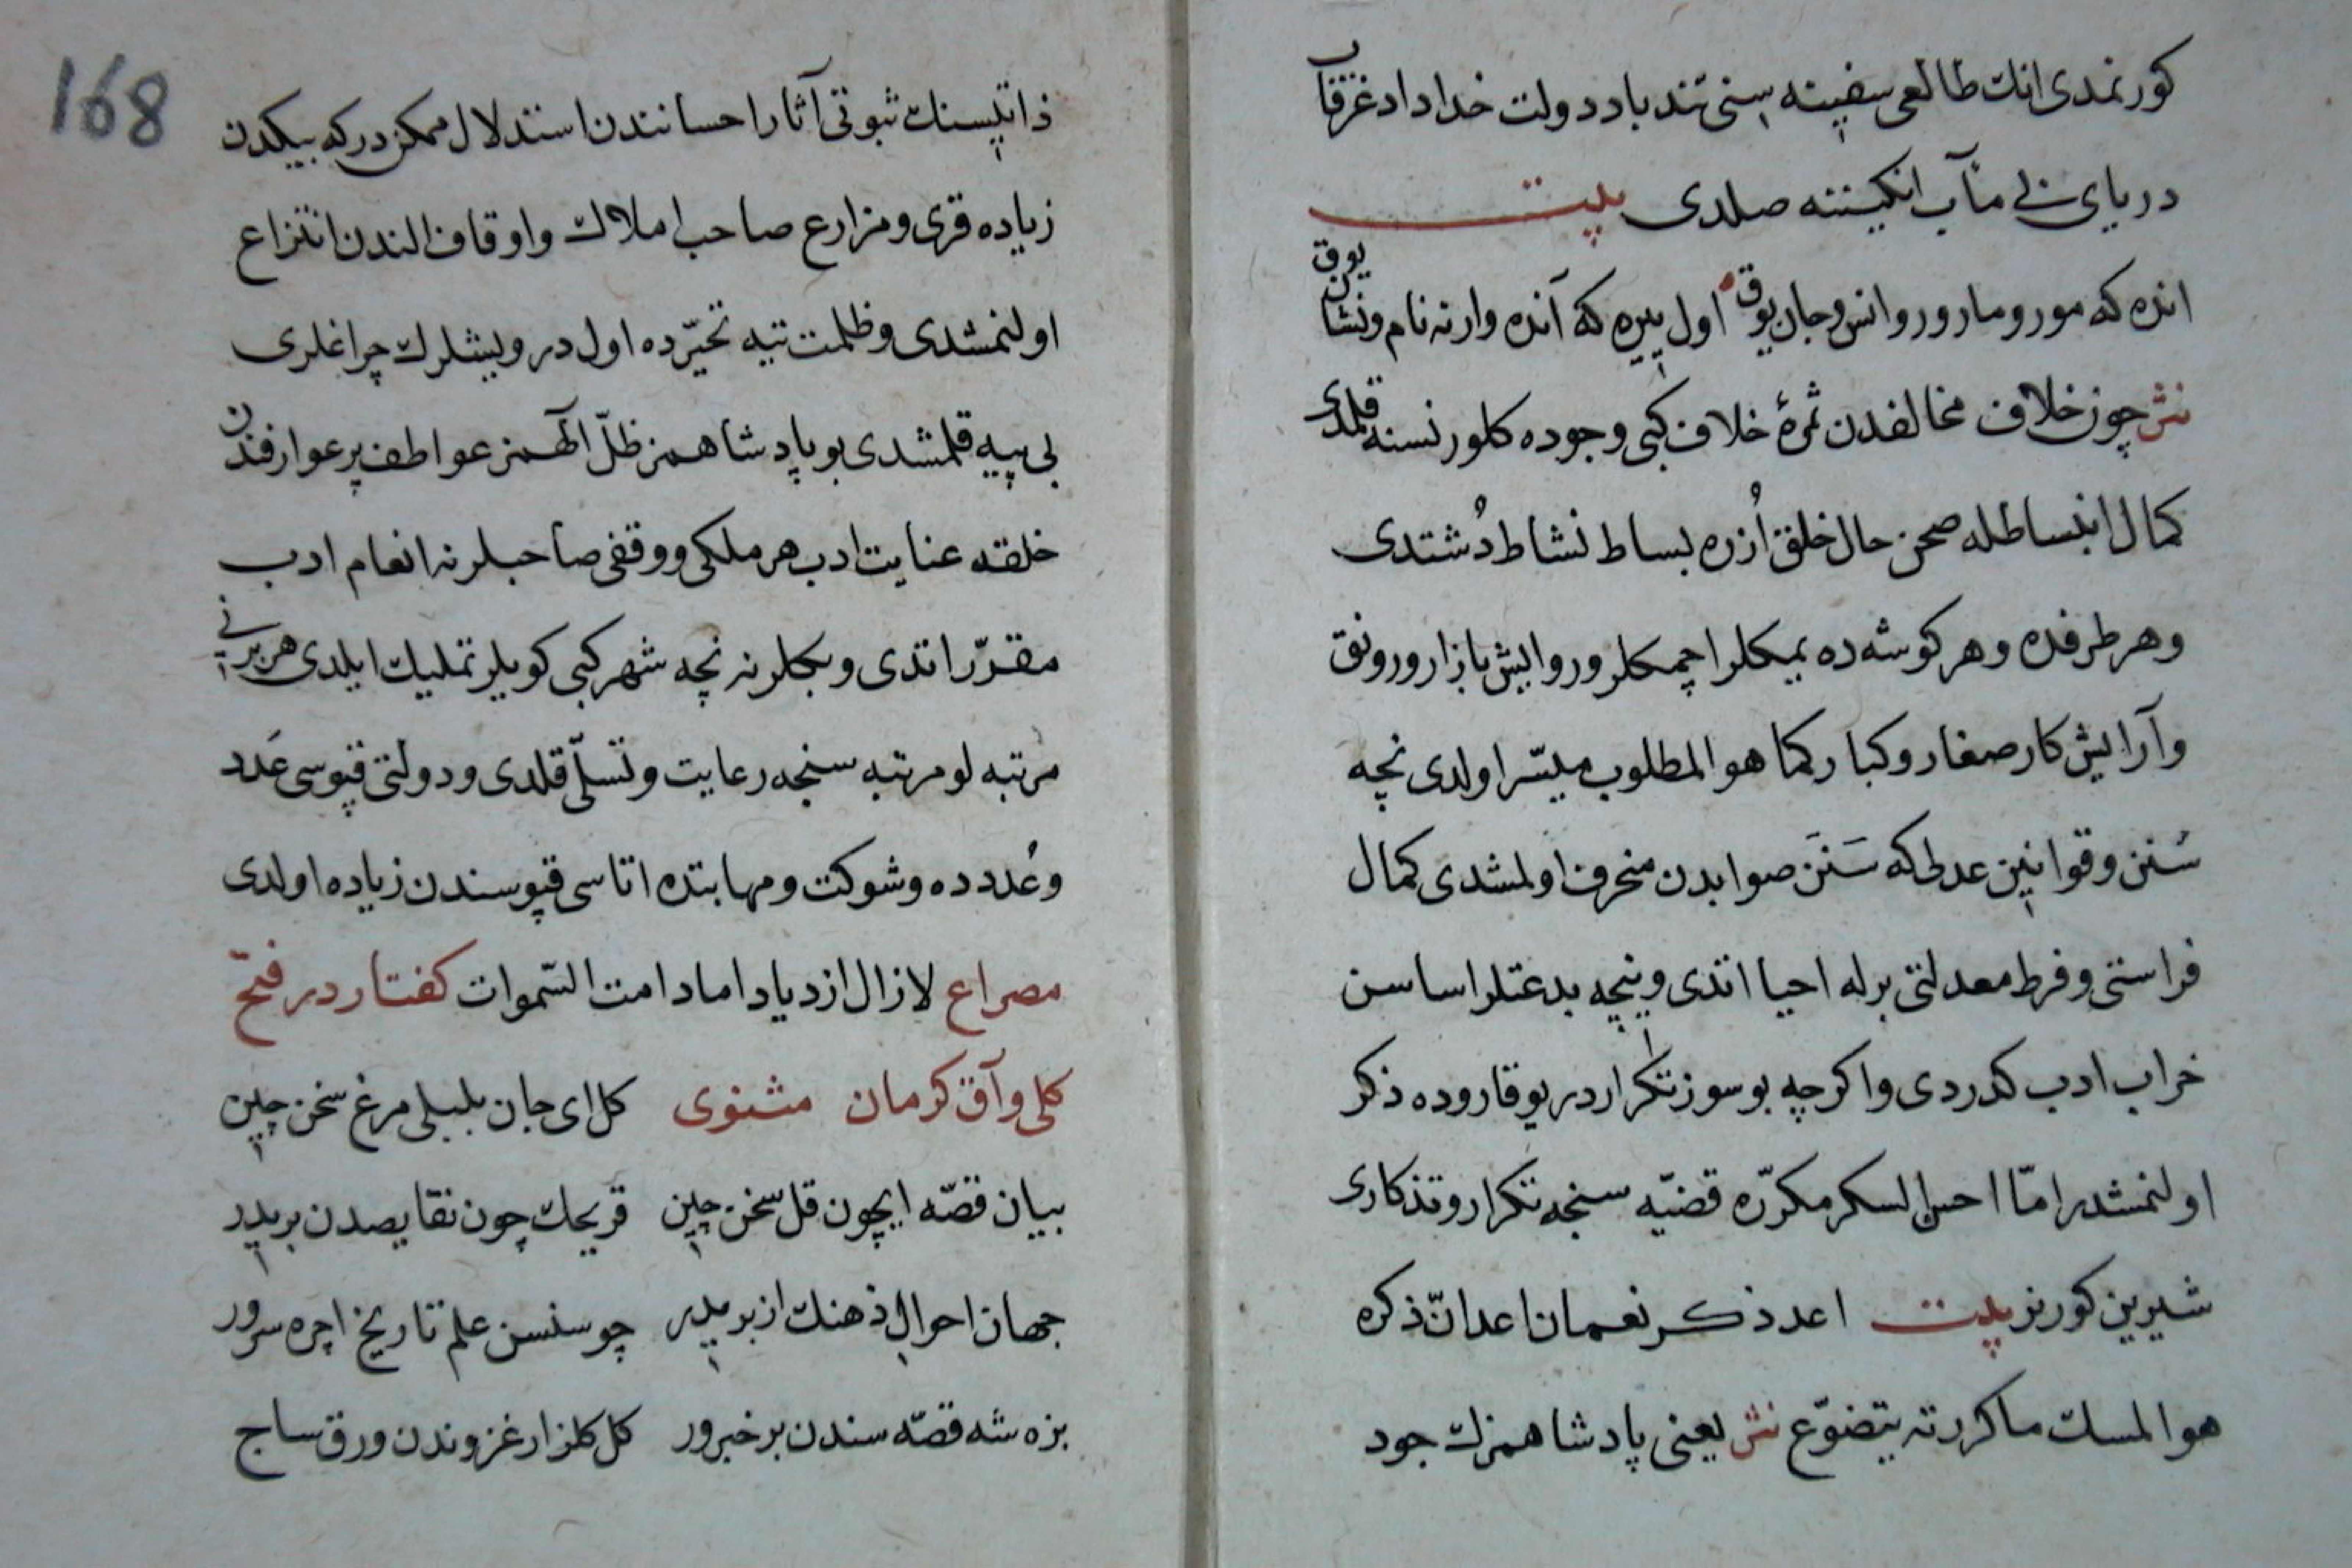 كورنمدى انك طالعى سفينه سنى تند باد دولت خدا داد غرقاب
درياى بى مآب انكيننه صلدى بيت
انده كه مور و مار ور و انس و جان يوق اول ييره كه آنده وار نه نام و نشان يوق
نثر چون خلاف مخالفدن ثمرۀ خلاف كبى وجوده كلور نسنه قلمدى
كمال انبساطله صحن حال خلق اُزره بساط نشاط دُشتدى
و هر طرفده و هر كوشه ده يمكلر اچمكلر و روايش بازار و رونق
و آرايش كار صغار و كبار كما هو المطلوب ميسّر اولدى نچه
سُنن و قوانين عدلى كه سَنَن صوابدن منحرف اولمشدى كمال
فراستى و فرط معدلتى برله احيا اتدى و نيچه بدعتلر اساسن
خراب ادب كدردى و اكرچه بو سوز تكراردر يوقاروده ذكر
اولنمشدر امّا احسن السكر مكرّره قضيّه سنجه تكرار و تذكارى
شيرين كورنر بيت اعد ذكر نعمان اعد انّ ذكره
هو المسك ما كررته يتضوّع نثر يعنى پادشاهمزك جود
168
ذاتيسنك ثبوتى آثار احسانندن استدلال ممكن در كه بيكدن
زياده قرى و مزارع صاحب املاك و اوقاف الندن انتزاع
اولنمشدى و ظلمت تيه تحيّرده اول درويشلرك چراغلرى
بى پيه قلمشدى بو پادشاهمز ظلّ الٓهمز عواطف پر عوارفندن
خلقه عنايت ادب هر ملكى و وقفى صاحبلرنه انعام ادب
مقرّر اتدى و بكلرنه نچه شهر كبى كويلر تمليك ايلدى هر برينى
مرتبه لو مرتبه سنجه رعايت و تسلّى قلدى و دولتى قپوسى عَدد
و عُددده و شوكت و مهابتده اتاسى قپوسندن زياده اولدى
مصراع لازال ازدياد اما دامت السّموات كفتار در فتح
كلى و آق كرمان مثنوى كل اى جان بلبلى مرغ سخن چين
بيان قصّه ايچون قل سخن چين قريحك چون نقايصدن بريدر
جهان احوالى ذهنك ازبريدر چو سنسن علم تاريخ اچره سرور
بزه شه قصّه سندن بر خبر ور كل كلزار غزوندن ورق ساج